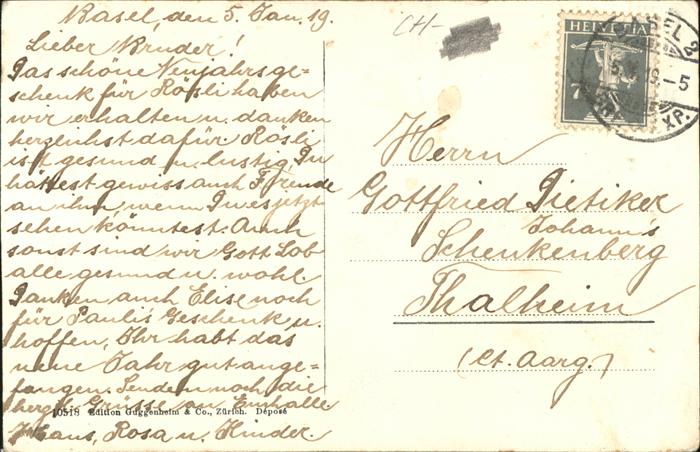 Basel, den 5. Jan. 19.
Lieber Bruder!
Das schöne Neujahrsge=
schenk für Rösli haben
wir erhalten u. danken
herzlichst dafür. Rösli
ist gesund u. lustig Du
hättest gewiss auch Freude
an ihm wenn Du es jetzt
sehen könntest. Auch
sonst sind wir Gott Lob
alle gesund u. wohl.
Danken auch Elise noch
für Paulis Geschenk u.
hoffen, Ihr habt das
neue Jahr gut ange=
fangen. Senden noch die
herzl. Grüsse an Euch alle
Hans, Rosa u. Kinder.
10518 Edition Guggenheim & Co., Zürich. Déposé
CH-
HELVETIA
7½
BASEL 2
XP.
Herrn
Gottfried Dietiker
Johann's
Schenkenberg
Thalheim
(Ct. Aarg.)